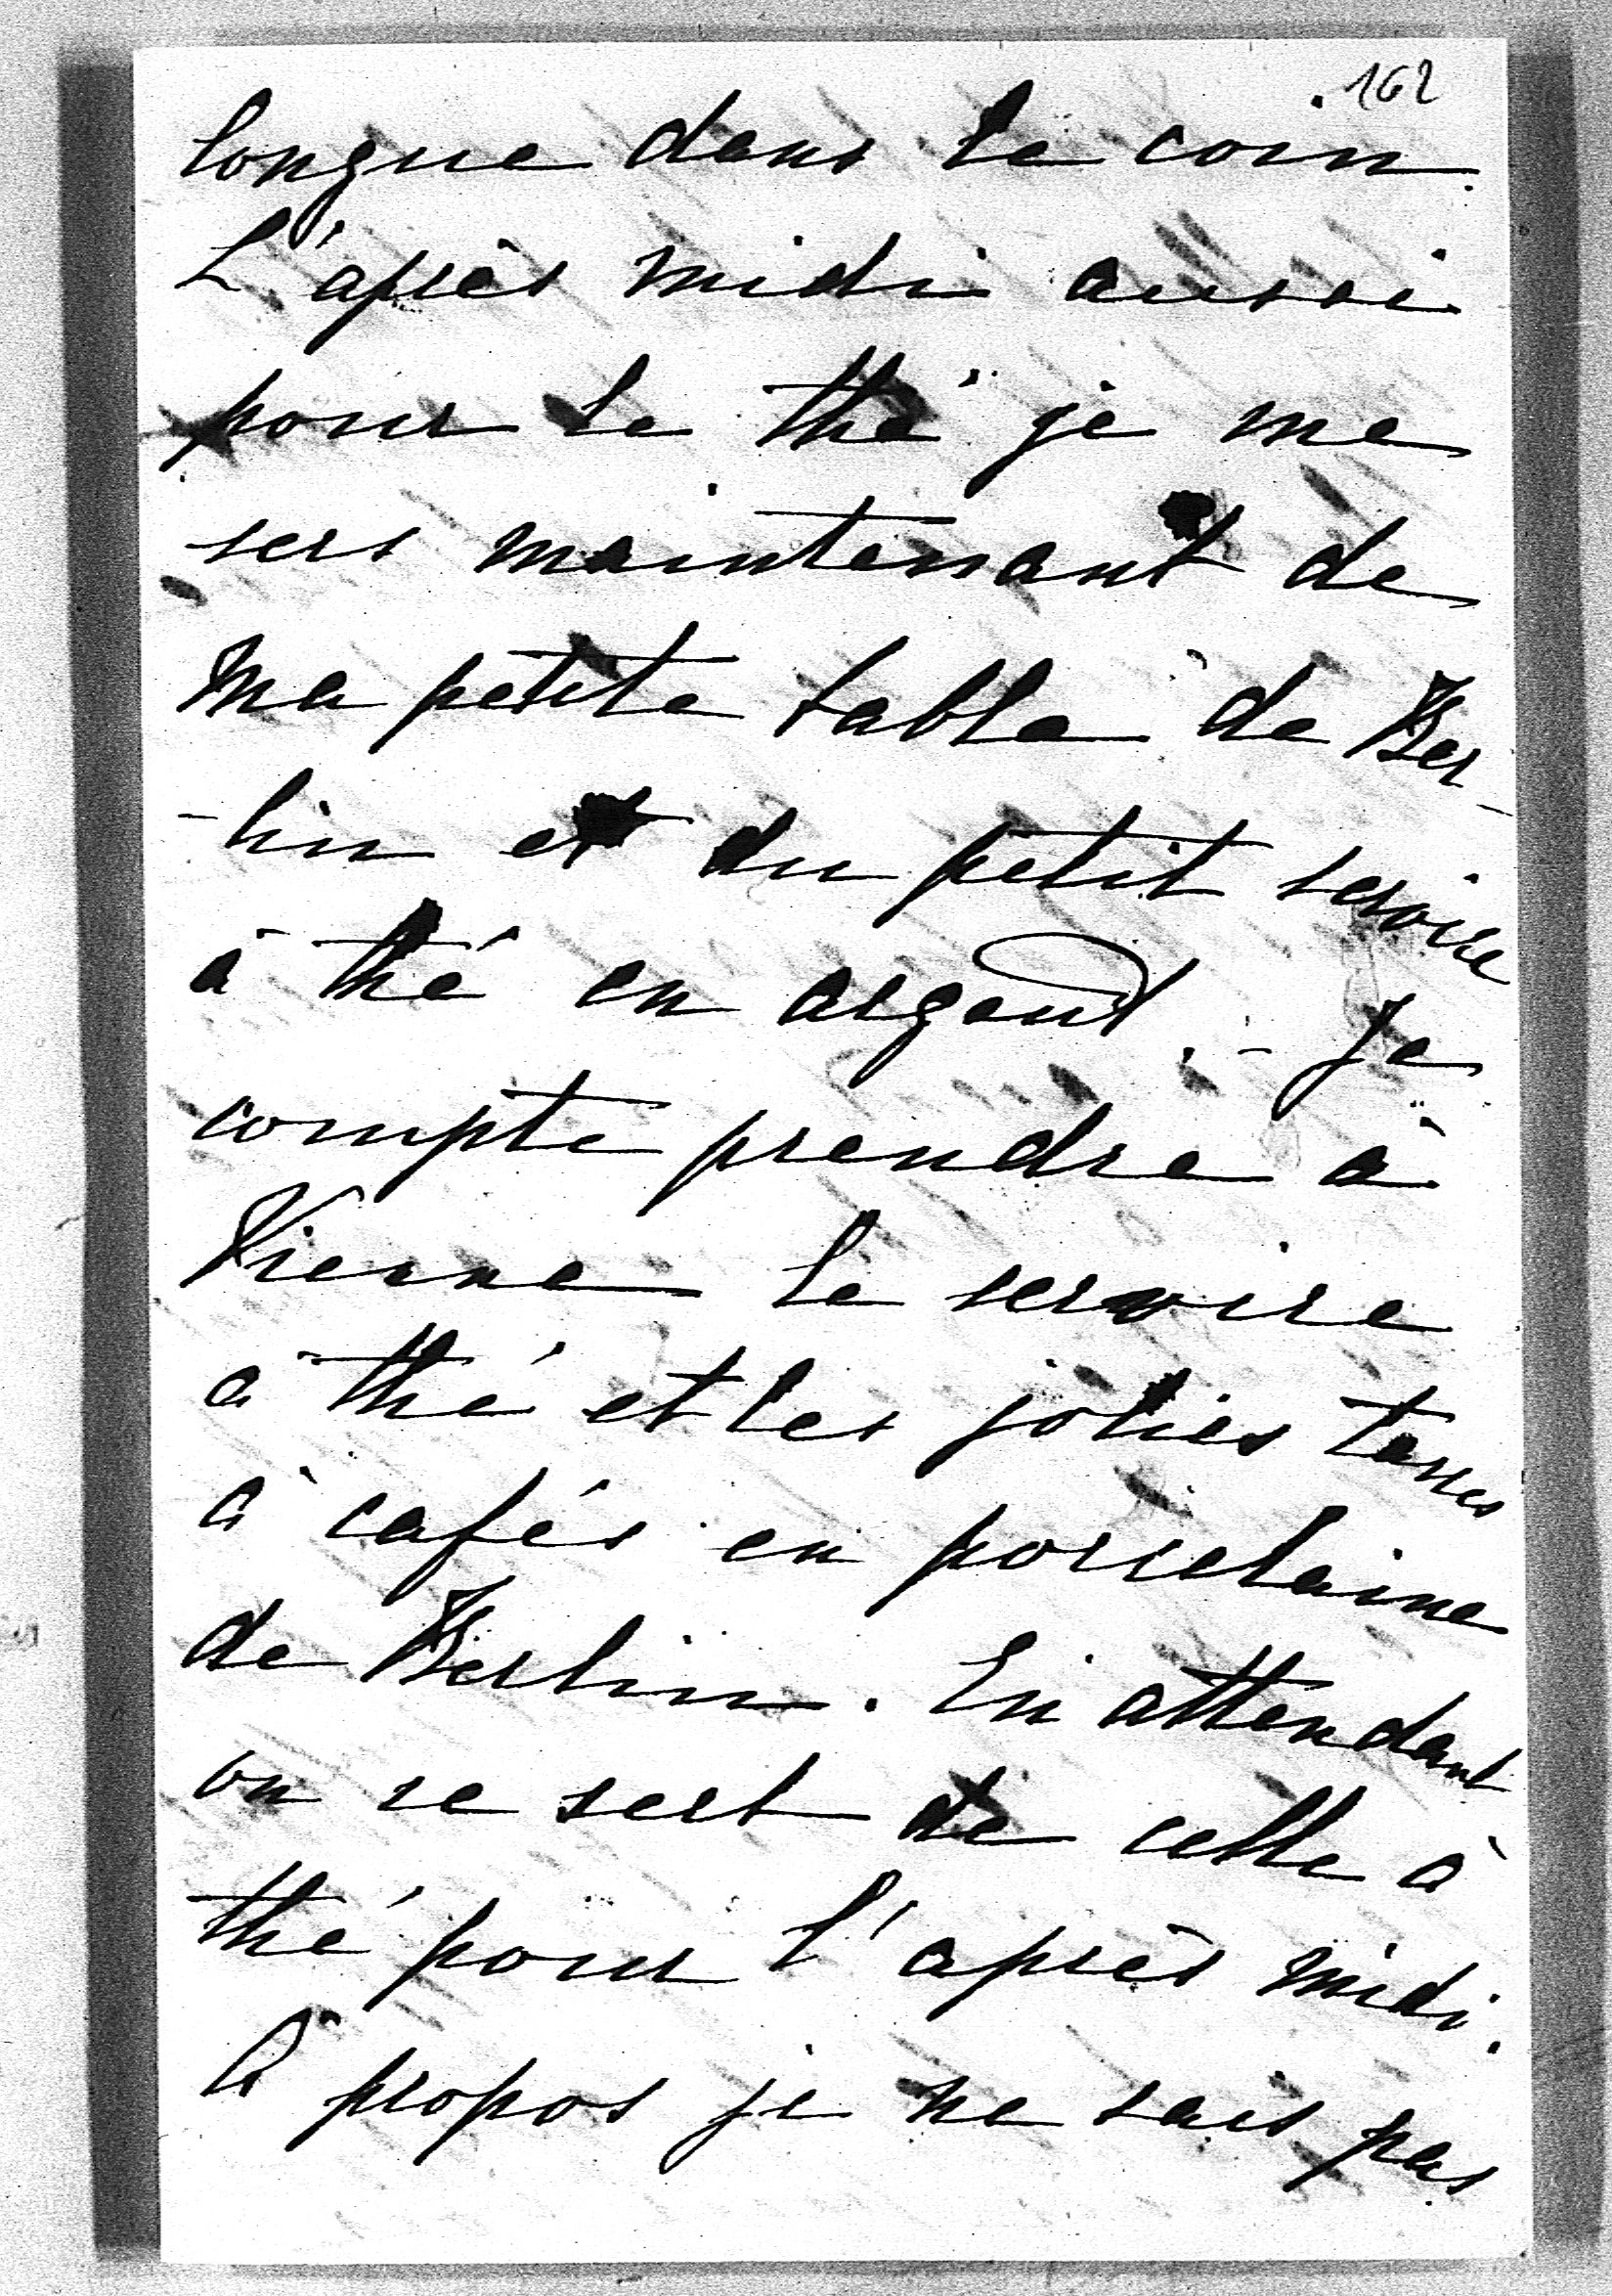 162
longue dans le coin.
L'après midi aussi
pour le thé je me
sers maintenant de
ma petite table de Ber-
-lin et du petit service
à thé en argent. - Je
compte prendre à
Vienne le service
à thé et les jolies tasses
à cafés en porcelaine
de Berlin. En attendant
on se sert de celle à
thé pour l'après midi.
A propos je ne sais pas